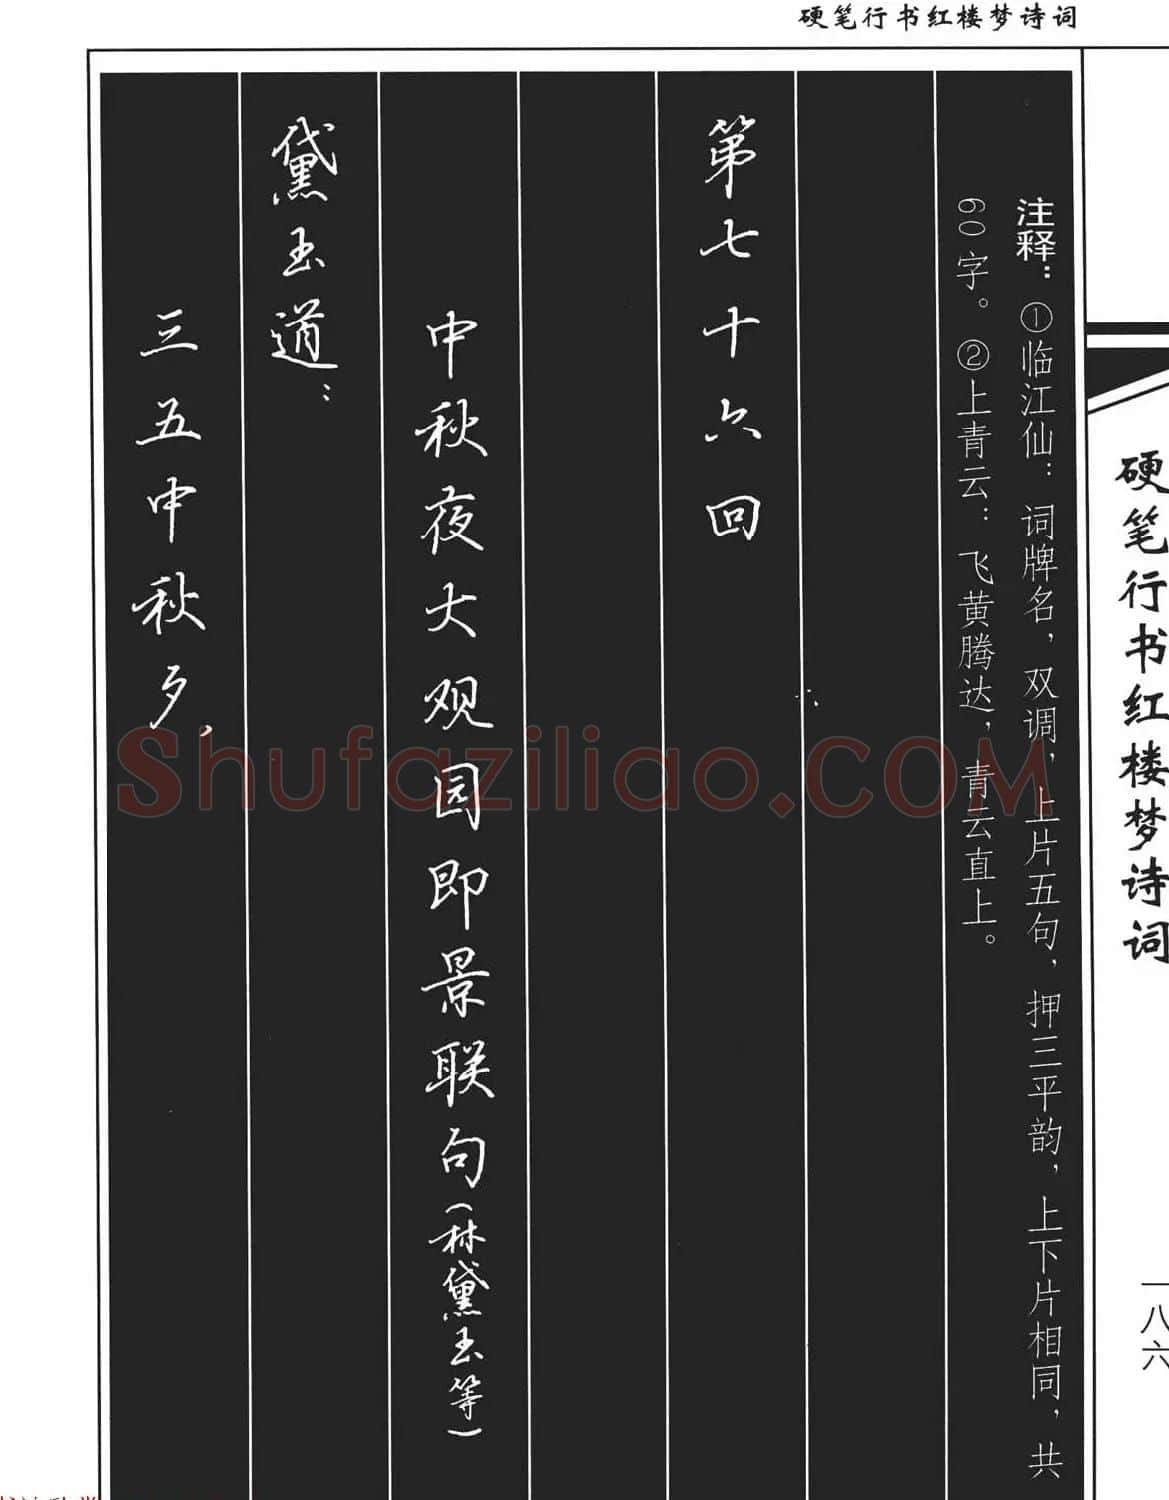 硬笔行书红楼梦诗词
硬笔行书红楼梦诗词
一八六
注释：①临江仙：词牌名，双调，上片五句，押三平韵，上下片相同，共
60字。②上青云：飞黄腾达，青云直上。
第七十六回
中秋夜大观园即景联句(林黛玉等)
黛玉道：
三五中秋夕，
Shufaziliao.COM